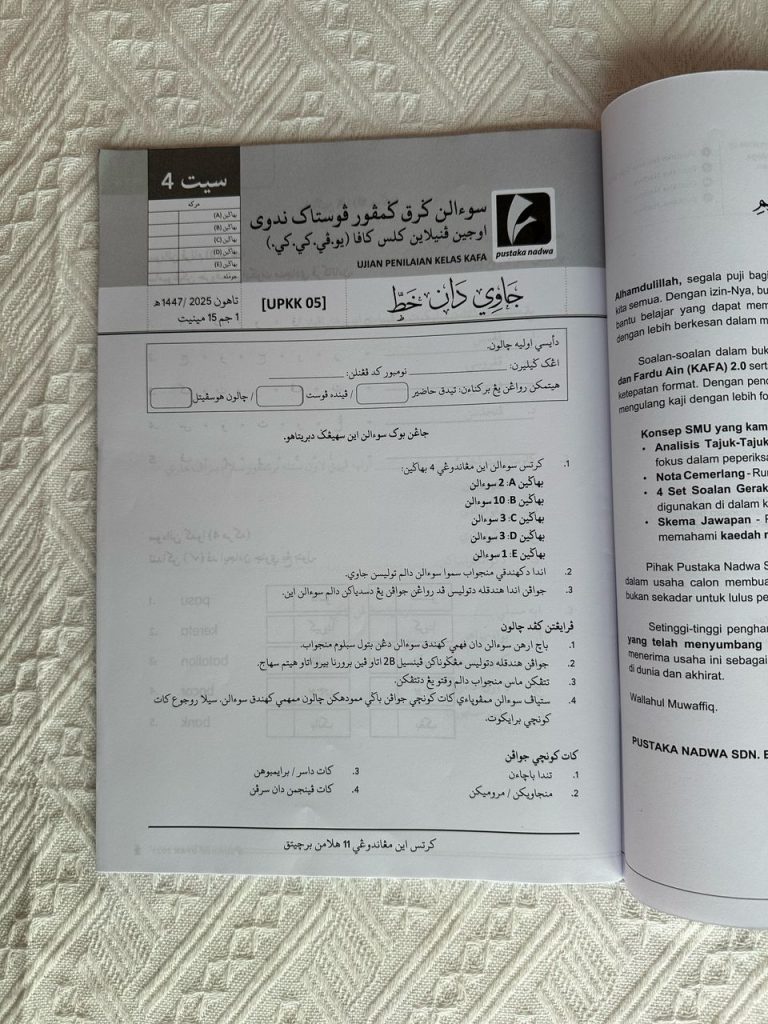 سيت 4
مرکه
بهاݢين (A)
بهاݢين (B)
بهاݢين (C)
بهاݢين (D)
بهاݢين (E)
جومله
سوءالن ݢرق ݢمڤور ڤوستاک ندوى
اوجين ڤنيلاين کلس کافا (يو.ڤي.کي.کي.)
UJIAN PENILAIAN KELAS KAFA
pustaka nadwa
جاوي دان خط
[UPKK 05]
تاهون 2025 /1447هـ
1 جم 15 مينيت
دأيسي اوليه چالون.
اڠک ݢيليرن: نومبور کد ڤڠنلن:
هيتمکن رواڠن يڠ برکناءن: تيدق حاضير / ڤينده ڤوست / چالون هوسڤيتل
جاڠن بوک سوءالن اين سهيڠݢ دبريتاهو.
1. کرتس سوءالن اين مڠاندوڠي 4 بهاݢين:
بهاݢين A: 2 سوءالن
بهاݢين B: 10 سوءالن
بهاݢين C: 3 سوءالن
بهاݢين D: 3 سوءالن
بهاݢين E: 1 سوءالن
2. اندا دکهندقي منجواب سموا سوءالن دالم توليسن جاوي.
3. جواڤن اندا هندقله دتوليس ڤد رواڠن جواڤن يڠ دسدياکن دالم سوءالن اين.
ڤرايڠتن کڤد چالون
1. باچ ارهن سوءالن دان فهمي کهندق سوءالن دڠن بتول سبلوم منجواب.
2. جواڤن هندقله دتوليس مڠݢوناکن ڤينسيل 2B اتاو ڤين برورنا بيرو اتاو هيتم سهاج.
3. تتڤکن ماس منجواب دالم وقتو يڠ دتتڤکن.
4. ستياڤ سوءالن ممڤوياءي کات کونچي جواڤن باݢي ممودهکن چالون ممهمي کهندق سوءالن. سيلا روجوع کات
کونچي برايکوت.
کات کونچي جواڤن
1. تندا باچاءن
2. منجاويکن / مروميکن
3. کات داسر / برايمبوهن
4. کات ڤينجمن دان سرڤن
کرتس اين مڠاندوڠي 11 هلامن برچيتق
Alhamdulillah, segala puji bag
kita semua. Dengan izin-Nya, bu
bantu belajar yang dapat mem
dengan lebih berkesan dalam m
Soalan-soalan dalam buk
dan Fardu Ain (KAFA) 2.0 sert
ketepatan format. Dengan pend
mengulang kaji dengan lebih fo
Konsep SMU yang kam
• Analisis Tajuk-Tajuk
fokus dalam peperiksa
• Nota Cemerlang - Ru
• 4 Set Soalan Gerak
digunakan di dalam k
• Skema Jawapan - P
memahami kaedah m
Pihak Pustaka Nadwa S
dalam usaha calon membua
bukan sekadar untuk lulus pe
Setinggi-tinggi penghar
yang telah menyumbang
menerima usaha ini sebagai
di dunia dan akhirat.
Wallahul Muwaffiq.
PUSTAKA NADWA SDN. B